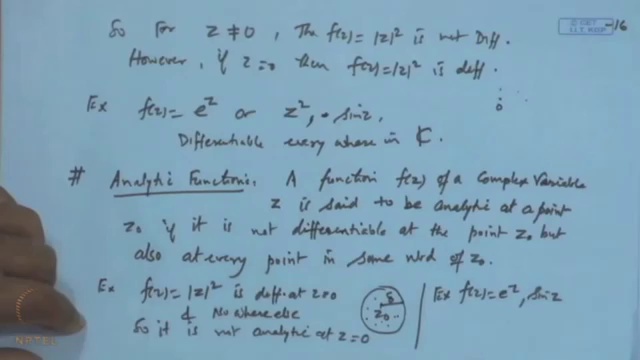 © CET
I.I.T. KGP
-16
So For z ≠ 0, The f(z) = |z|² is not Diff.
However, if z = 0 then f(z) = |z|² is diff.
0
Ex f(z) = e^z or z², sin z,
Differentiable every where in ₵.
# Analytic Functions. A function f(z) of a Complex Variable
z is said to be analytic at a point
z₀ if it is not differentiable at the point z₀ but
also at every point in some nbd of z₀.
Ex f(z) = |z|² is diff. at z=0
& No where else
So it is not analytic at z=0
δ
z₀
Ex f(z) = e^z, sin z
NPTEL